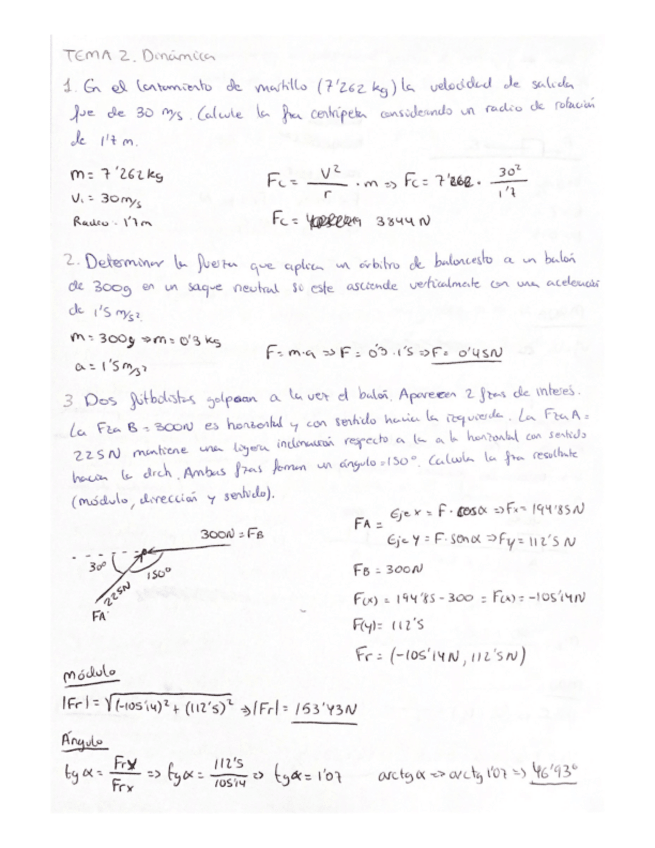 TEMA 2. Dinámica
1. En el lanzamiento de martillo (7'262 kg) la velocidad de salida
fue de 30 m/s. Calcule la fza centrípeta considerando un radio de rotación
de 1'7 m.
m = 7'262 kg
Fc = V²/r · m => Fc = 7'262 · 30²/1'7
V₁ = 30 m/s
Radio = 1'7 m
Fc = 3844 N
2. Determinar la fuerza que aplica un árbitro de baloncesto a un balón
de 300g en un saque neutral si este asciende verticalmente con una aceleración
de 1'5 m/s².
m = 300g => m = 0'3 kg
F = m·a => F = 0'3 · 1'5 => F = 0'45N
a = 1'5 m/s²
3 Dos futbolistas golpean a la vez el balón. Aparecen 2 fzas de interés.
La Fza B = 300N es horizontal y con sentido hacia la izquierda. La Fza A =
225N mantiene una ligera inclinación respecto a la a la horizontal con sentido
hacia la drch. Ambas fzas forman un ángulo = 150°. Calcula la fza resultate
(módulo, dirección y sentido).
300N = FB
30°
150°
225N
FA
FA = Eje x = F · cosα => Fx = 194'85N
Eje y = F · senα => Fy = 112'5 N
FB = 300N
F(x) = 194'85 - 300 = F(x) = -105'14N
F(y) = 112'5
Fr = (-105'14N, 112'5N)
módulo
|Fr| = √(-105'14)² + (112'5)² => |Fr| = 153'43N
Ángulo
tgα = Fry/Frx => tgα = 112'5/105'14 => tgα = 1'07 arctgα => arctg 1'07 => 46'93°